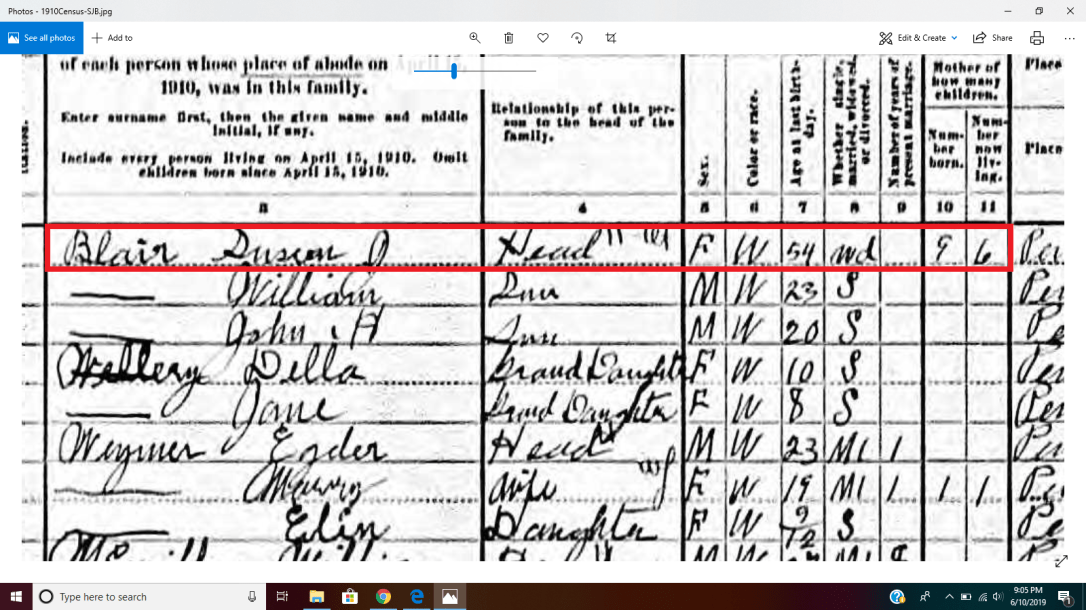 Photos - 1910Census-SJB.jpg
See all photos
Add to
Edit & Create
Share
of each person whose place of abode on April 15,
1910, was in this family.
Enter surname first, then the given name and middle
initial, if any.
Include every person living on April 15, 1910. Omit
children born since April 15, 1910.
Relationship of this per-
son to the head of the
family.
Sex.
Color or race.
Age at last birth-
day.
Whether single,
married, widowed,
or divorced.
Number of years of
present marriage.
Mother of
how many
children.
Num-
ber
born.
Num-
ber
now
liv-
ing.
Place
Place
3 4 5 6 7 8 9 10 11
Blair Head F W 54 wd 9 6
William M W 23 S
John H M W 20 S
Della Grand Daughter F W 10 S
Jane Grand Daughter F W 8 S
Head M W 23 M1 1
wife F W 19 M1 1 1 1
Daughter F W 9/12 S
Type here to search
9:05 PM
6/10/2019
1